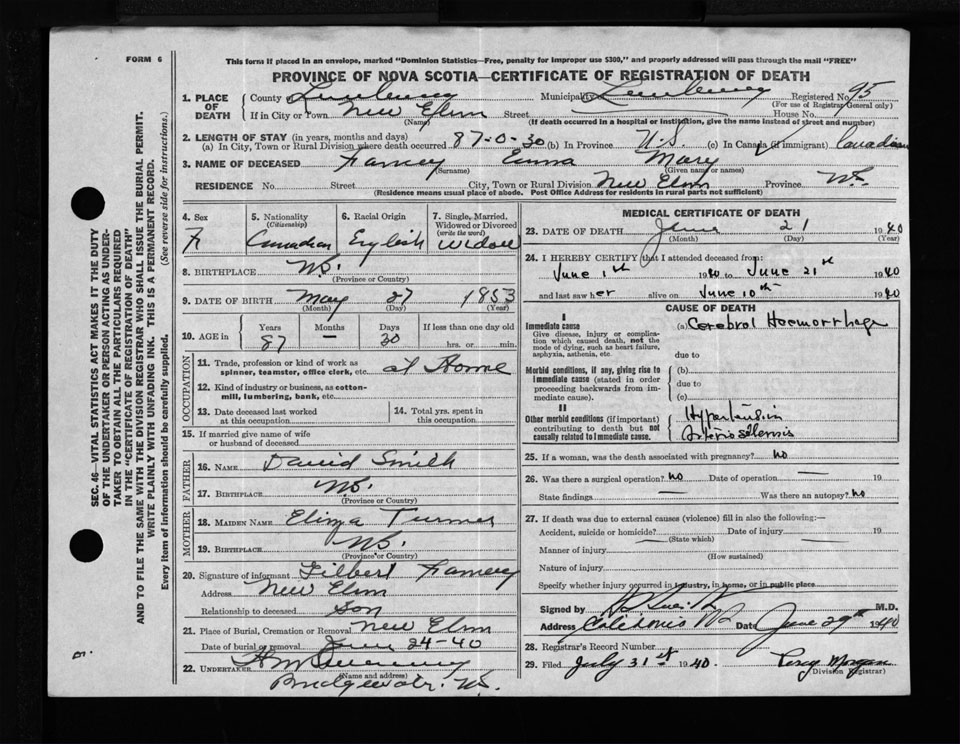 FORM 6
This form if placed in an envelope, marked "Dominion Statistics—Free, penalty for improper use $300," and properly addressed will pass through the mail "FREE"
PROVINCE OF NOVA SCOTIA—CERTIFICATE OF REGISTRATION OF DEATH
1. PLACE OF DEATH
County Lunenburg Municipality Lunenburg Registered No. 95
(For use of Registrar General only)
If in City or Town New Elm Street House No.
(Name) (If death occurred in a hospital or institution, give the name instead of street and number)
2. LENGTH OF STAY (in years, months and days)
(a) In City, Town or Rural Division where death occurred 87-0-30 (b) In Province N.S. (c) In Canada (if immigrant) Canadian
3. NAME OF DECEASED Ramey Emma Mary
(Surname) (Given name or names)
RESIDENCE No. Street City, Town or Rural Division New Elm Province N.S.
(Residence means usual place of abode. Post Office Address for residents in rural parts not sufficient)
4. Sex F
5. Nationality (Citizenship) Canadian
6. Racial Origin English
7. Single, Married, Widowed or Divorced (write the word) Widow
8. BIRTHPLACE N.S.
(Province or Country)
9. DATE OF BIRTH May 27 1853
(Month) (Day) (Year)
10. AGE in Years 87 Months — Days 30 If less than one day old hrs. or min.
OCCUPATION
11. Trade, profession or kind of work as spinner, teamster, office clerk, etc. at Home
12. Kind of industry or business, as cotton-mill, lumbering, bank, etc.
13. Date deceased last worked at this occupation
14. Total yrs. spent in this occupation
15. If married give name of wife or husband of deceased
FATHER
16. NAME David Smith
17. BIRTHPLACE N.S.
(Province or Country)
MOTHER
18. MAIDEN NAME Eliza Turner
19. BIRTHPLACE N.S.
(Province or Country)
20. Signature of informant Filbert Ramey
Address New Elm
Relationship to deceased Son
21. Place of Burial, Cremation or Removal New Elm
Date of burial or removal June 24-40
22. UNDERTAKER
(Name and address)
Bridgewater, N.S.
MEDICAL CERTIFICATE OF DEATH
23. DATE OF DEATH June 21 1940
(Month) (Day) (Year)
24. I HEREBY CERTIFY that I attended deceased from:
June 1th 1940 to June 21st 1940
and last saw her alive on June 10th 1940
CAUSE OF DEATH
I
Immediate cause (a) Cerebral Haemorrhage
Give disease, injury or complication which caused death, not the mode of dying, such as heart failure, asphyxia, asthenia, etc.
due to
Morbid conditions, if any, giving rise to immediate cause (stated in order proceeding backwards from immediate cause).
(b)
due to
(c)
II
Other morbid conditions (if important) contributing to death but not causally related to immediate cause.
Hypertension
Arteriosclerosis
25. If a woman, was the death associated with pregnancy? no
26. Was there a surgical operation? no Date of operation — 19
State findings — Was there an autopsy? no
27. If death was due to external causes (violence) fill in also the following:—
Accident, suicide or homicide? — Date of injury — 19
(State which)
Manner of injury
(How sustained)
Nature of injury
Specify whether injury occurred in industry, in home, or in public place
Signed by M.D.
Address Caledonia NS Date June 29th 1940
28. Registrar's Record Number
29. Filed July 31st 1940. Percy Morgan
(Division Registrar)
SEC. 46—VITAL STATISTICS ACT MAKES IT THE DUTY
OF THE UNDERTAKER OR PERSON ACTING AS UNDER-
TAKER TO OBTAIN ALL THE PARTICULARS REQUIRED
IN THE "CERTIFICATE OF REGISTRATION OF DEATH"
AND TO FILE THE SAME WITH THE DIVISION REGISTRAR WHO SHALL ISSUE THE BURIAL PERMIT.
WRITE PLAINLY WITH UNFADING INK. THIS IS A PERMANENT RECORD.
Every item of information should be carefully supplied. (See reverse side for instructions.)